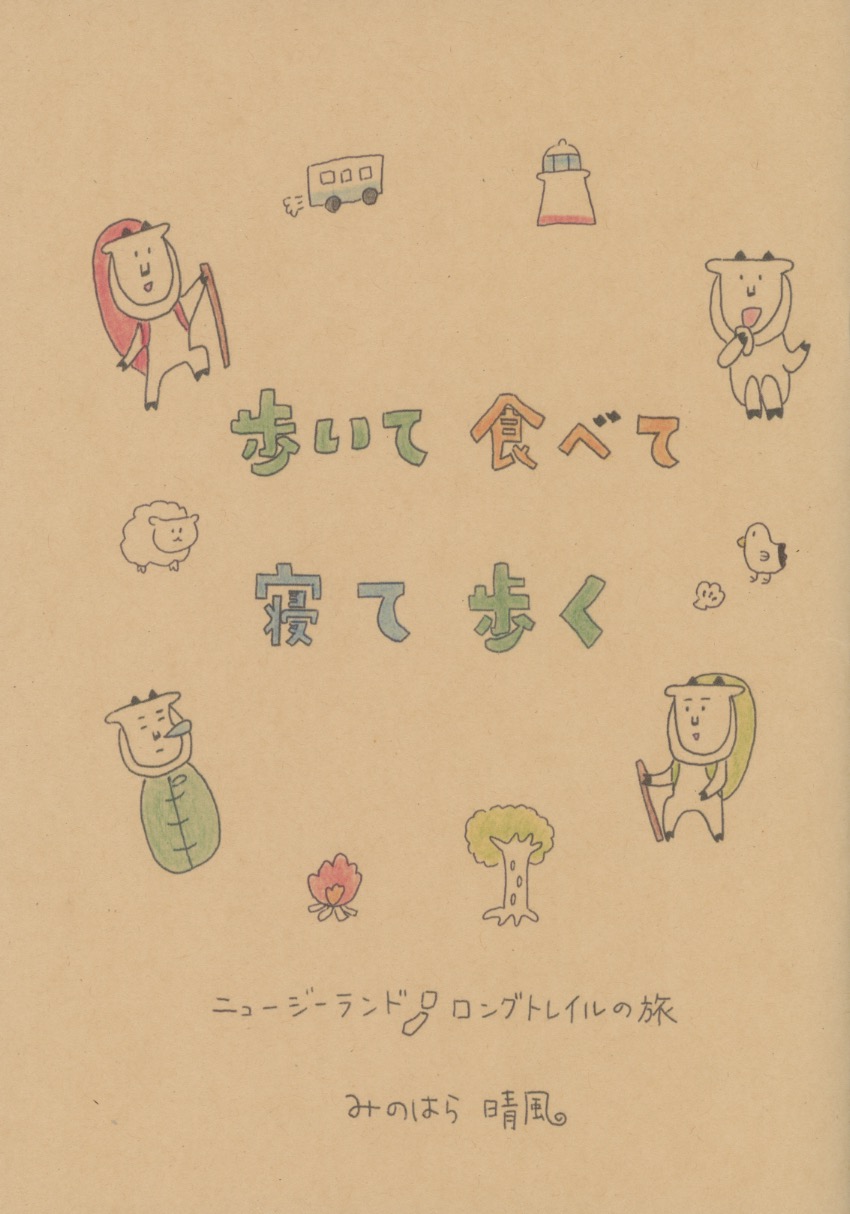 歩いて 食べて
寝て 歩く
ニュージーランド ロングトレイルの旅
みのはら 晴風